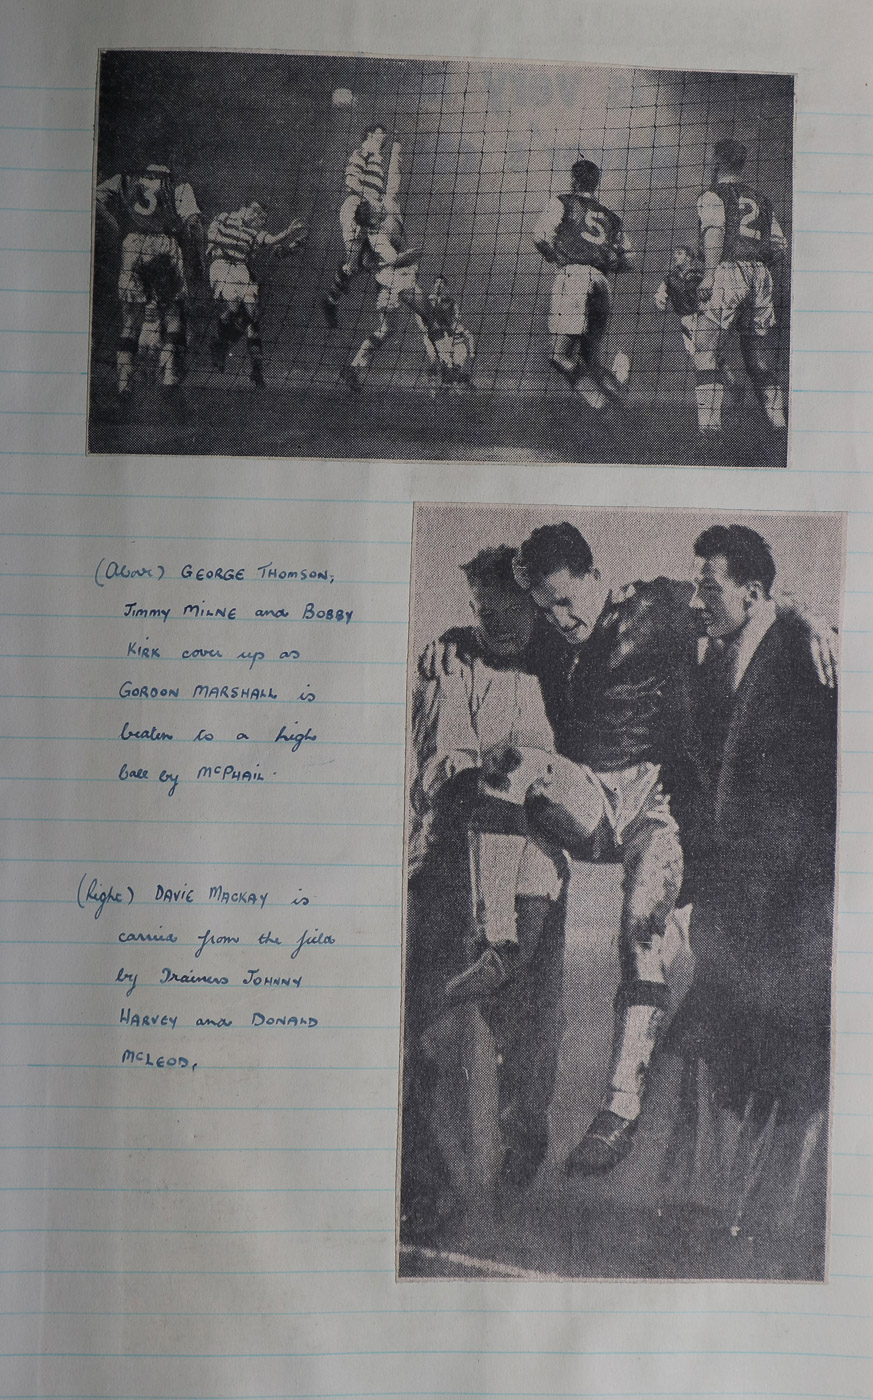 3
5
2
(Above) GEORGE THOMSON,
Jimmy MILNE and BOBBY
KIRK cover up as
GORDON MARSHALL is
beaten to a high
ball by McPHAIL.
(Right) DAVIE MACKAY is
carried from the field
by Trainers JOHNNY
HARVEY and DONALD
McLEOD,